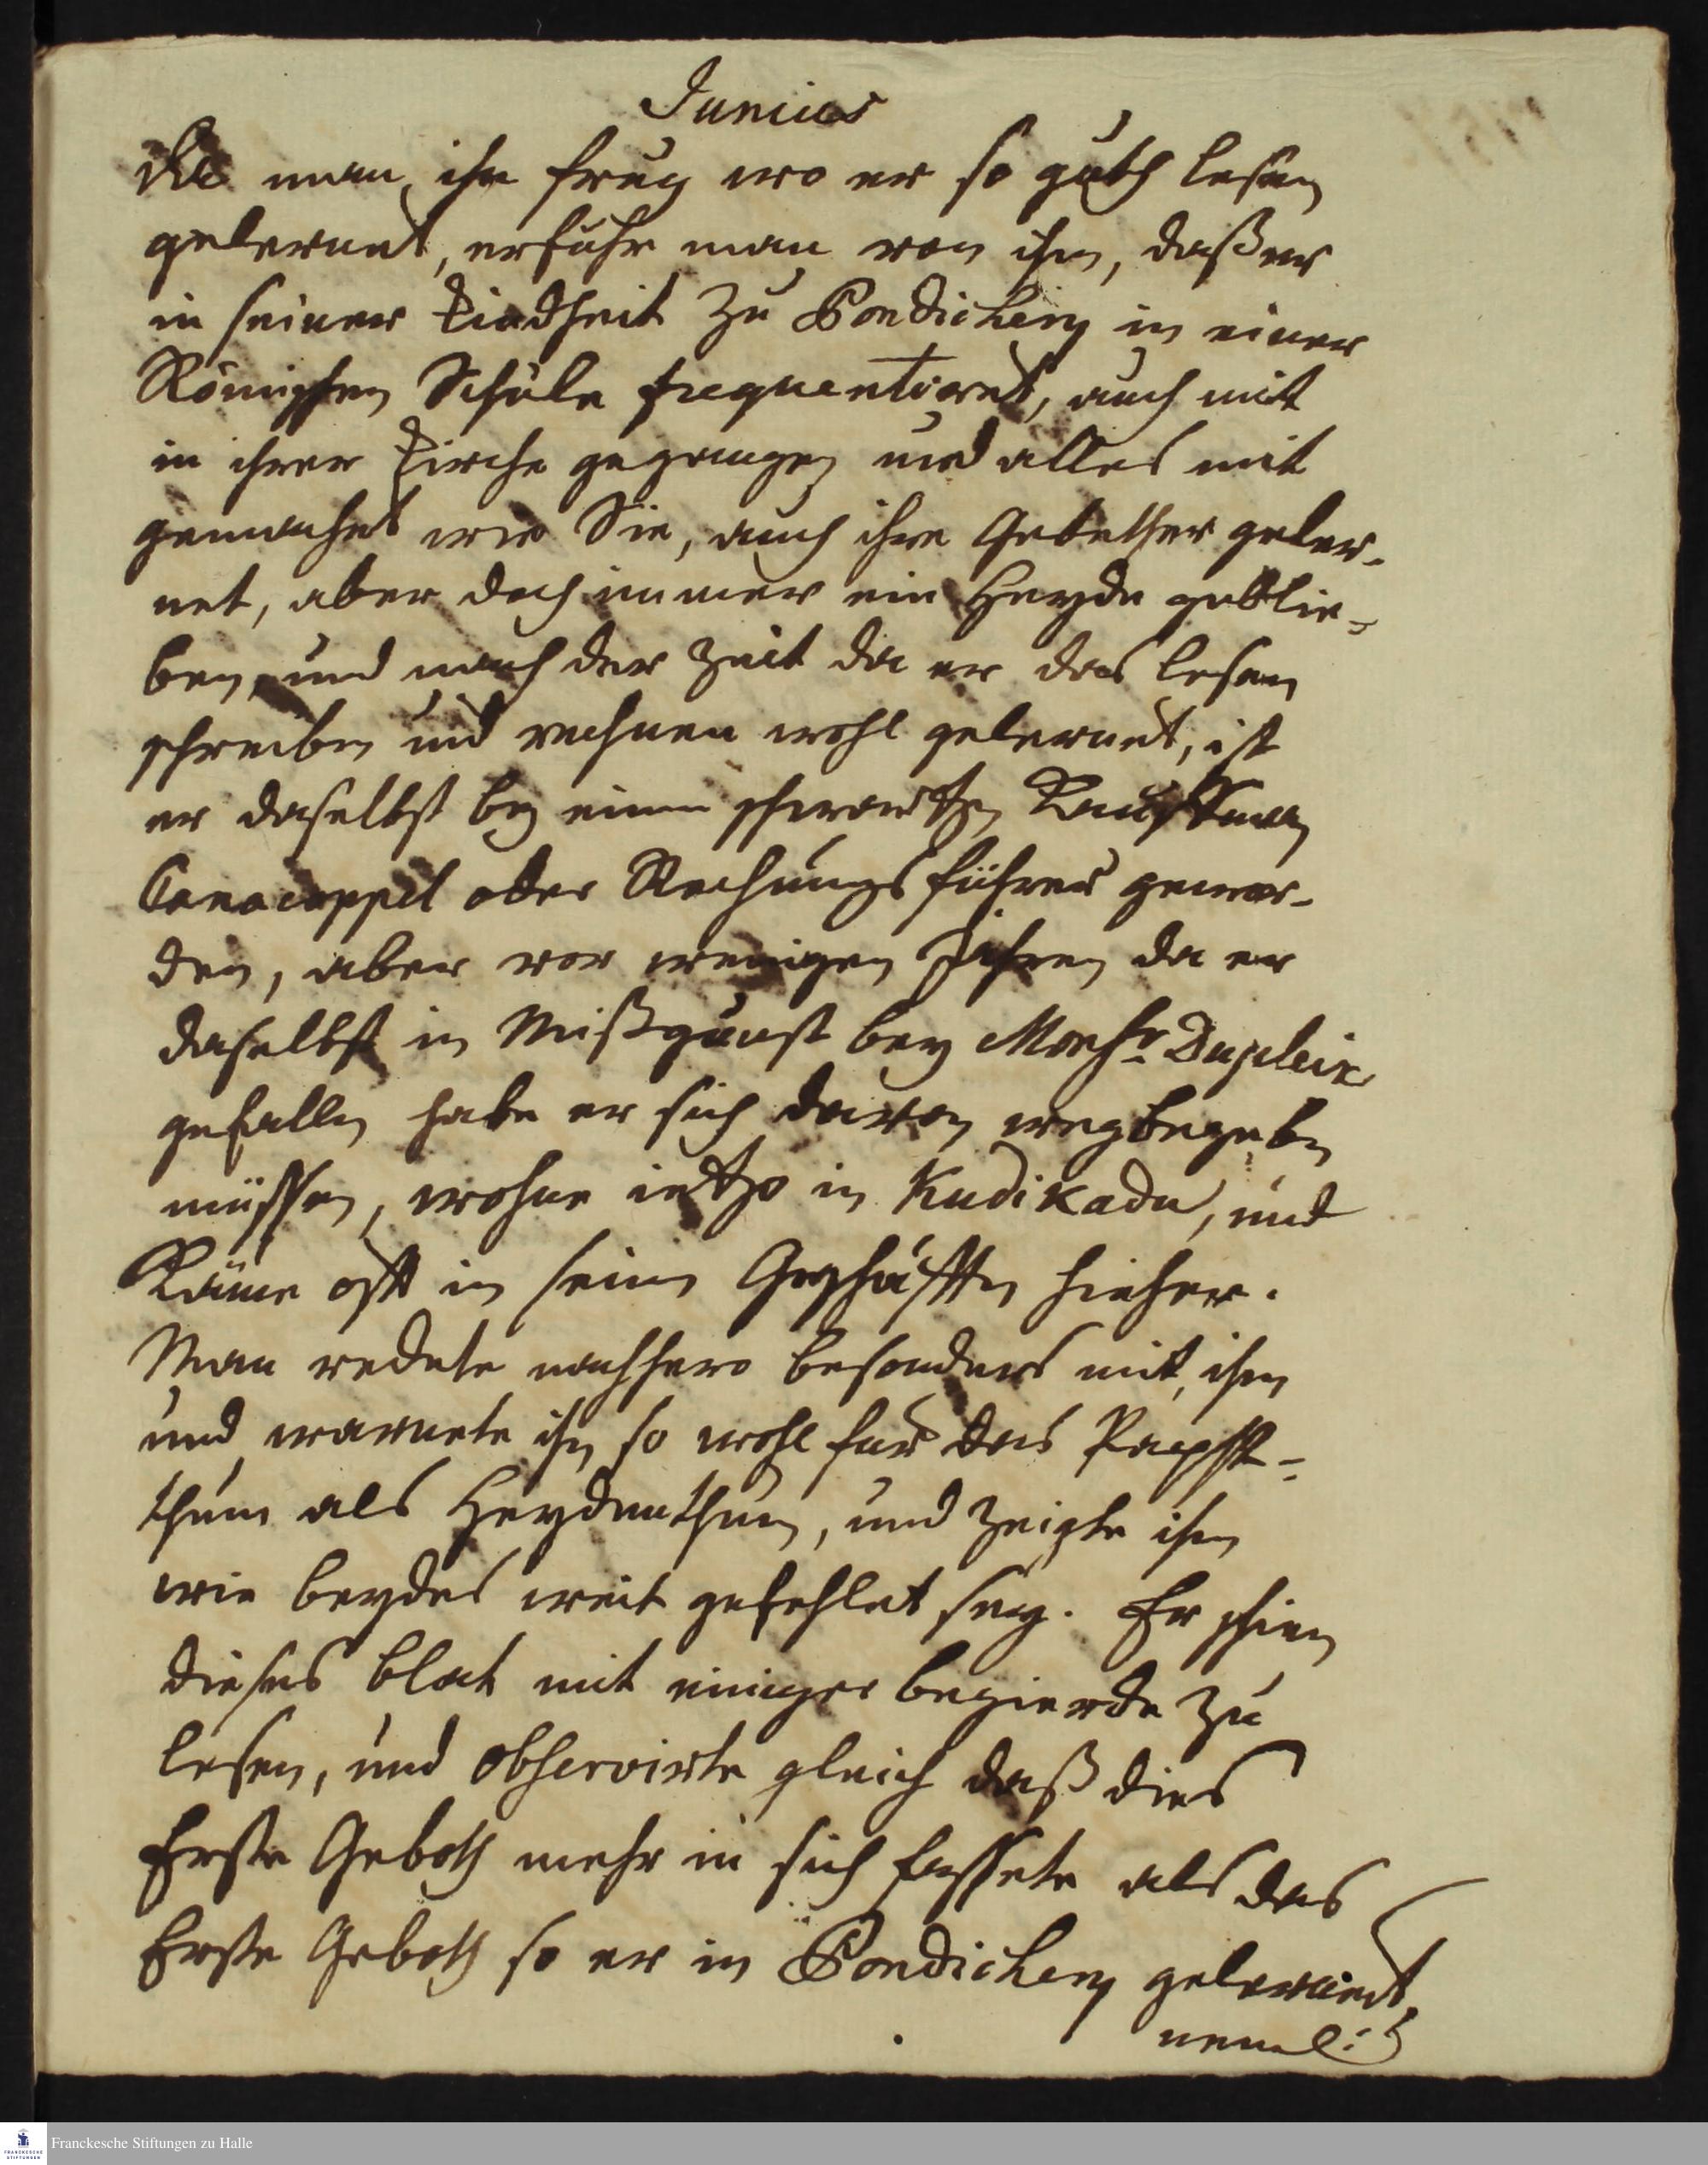 Junius
Als man ihn frug wo er so guth lesen
gelernet, erfuhr man von ihm, daß er
in seiner Kindheit zu Pondichery in einer
Römischen Schule frequentiret, auch mit
in ihrer Kirche gegangen und alles mit
gemachet wie Sie, auch ihre Gebether geler-
net, aber doch immer ein Heyde geblie-
ben, und nach der Zeit da er das lesen
schreiben und rechnen wohl gelernet, ist
er daselbst bey einem schwartzen Kauffman
Canacappel oder Rechungsführer gewor-
den, aber vor wenigen Jahren da er
daselbst in Mißgunst bey Monsr. Dupleix
gefallen habe er sich davon wegbegeben
müssen, wohne ietzo in Kudikadu, und
Käme oft in seinen Geschäfften hieher.
Man redete nachhero besonders mit ihm
und warnete ihn so wohl für das Papst-
thum als Heydenthum, und zeigte ihm
wie beydes weit gefehlet sey. Er schien
dieses blat mit einiger begierde zu
lesen, und observirte gleich daß dies
Erste Geboth mehr in sich fassete als das
Erste Geboth so er in Pondichery gelernet,
neml:
Franckesche Stiftungen zu Halle
FRANCKESCHE
STIFTUNGEN